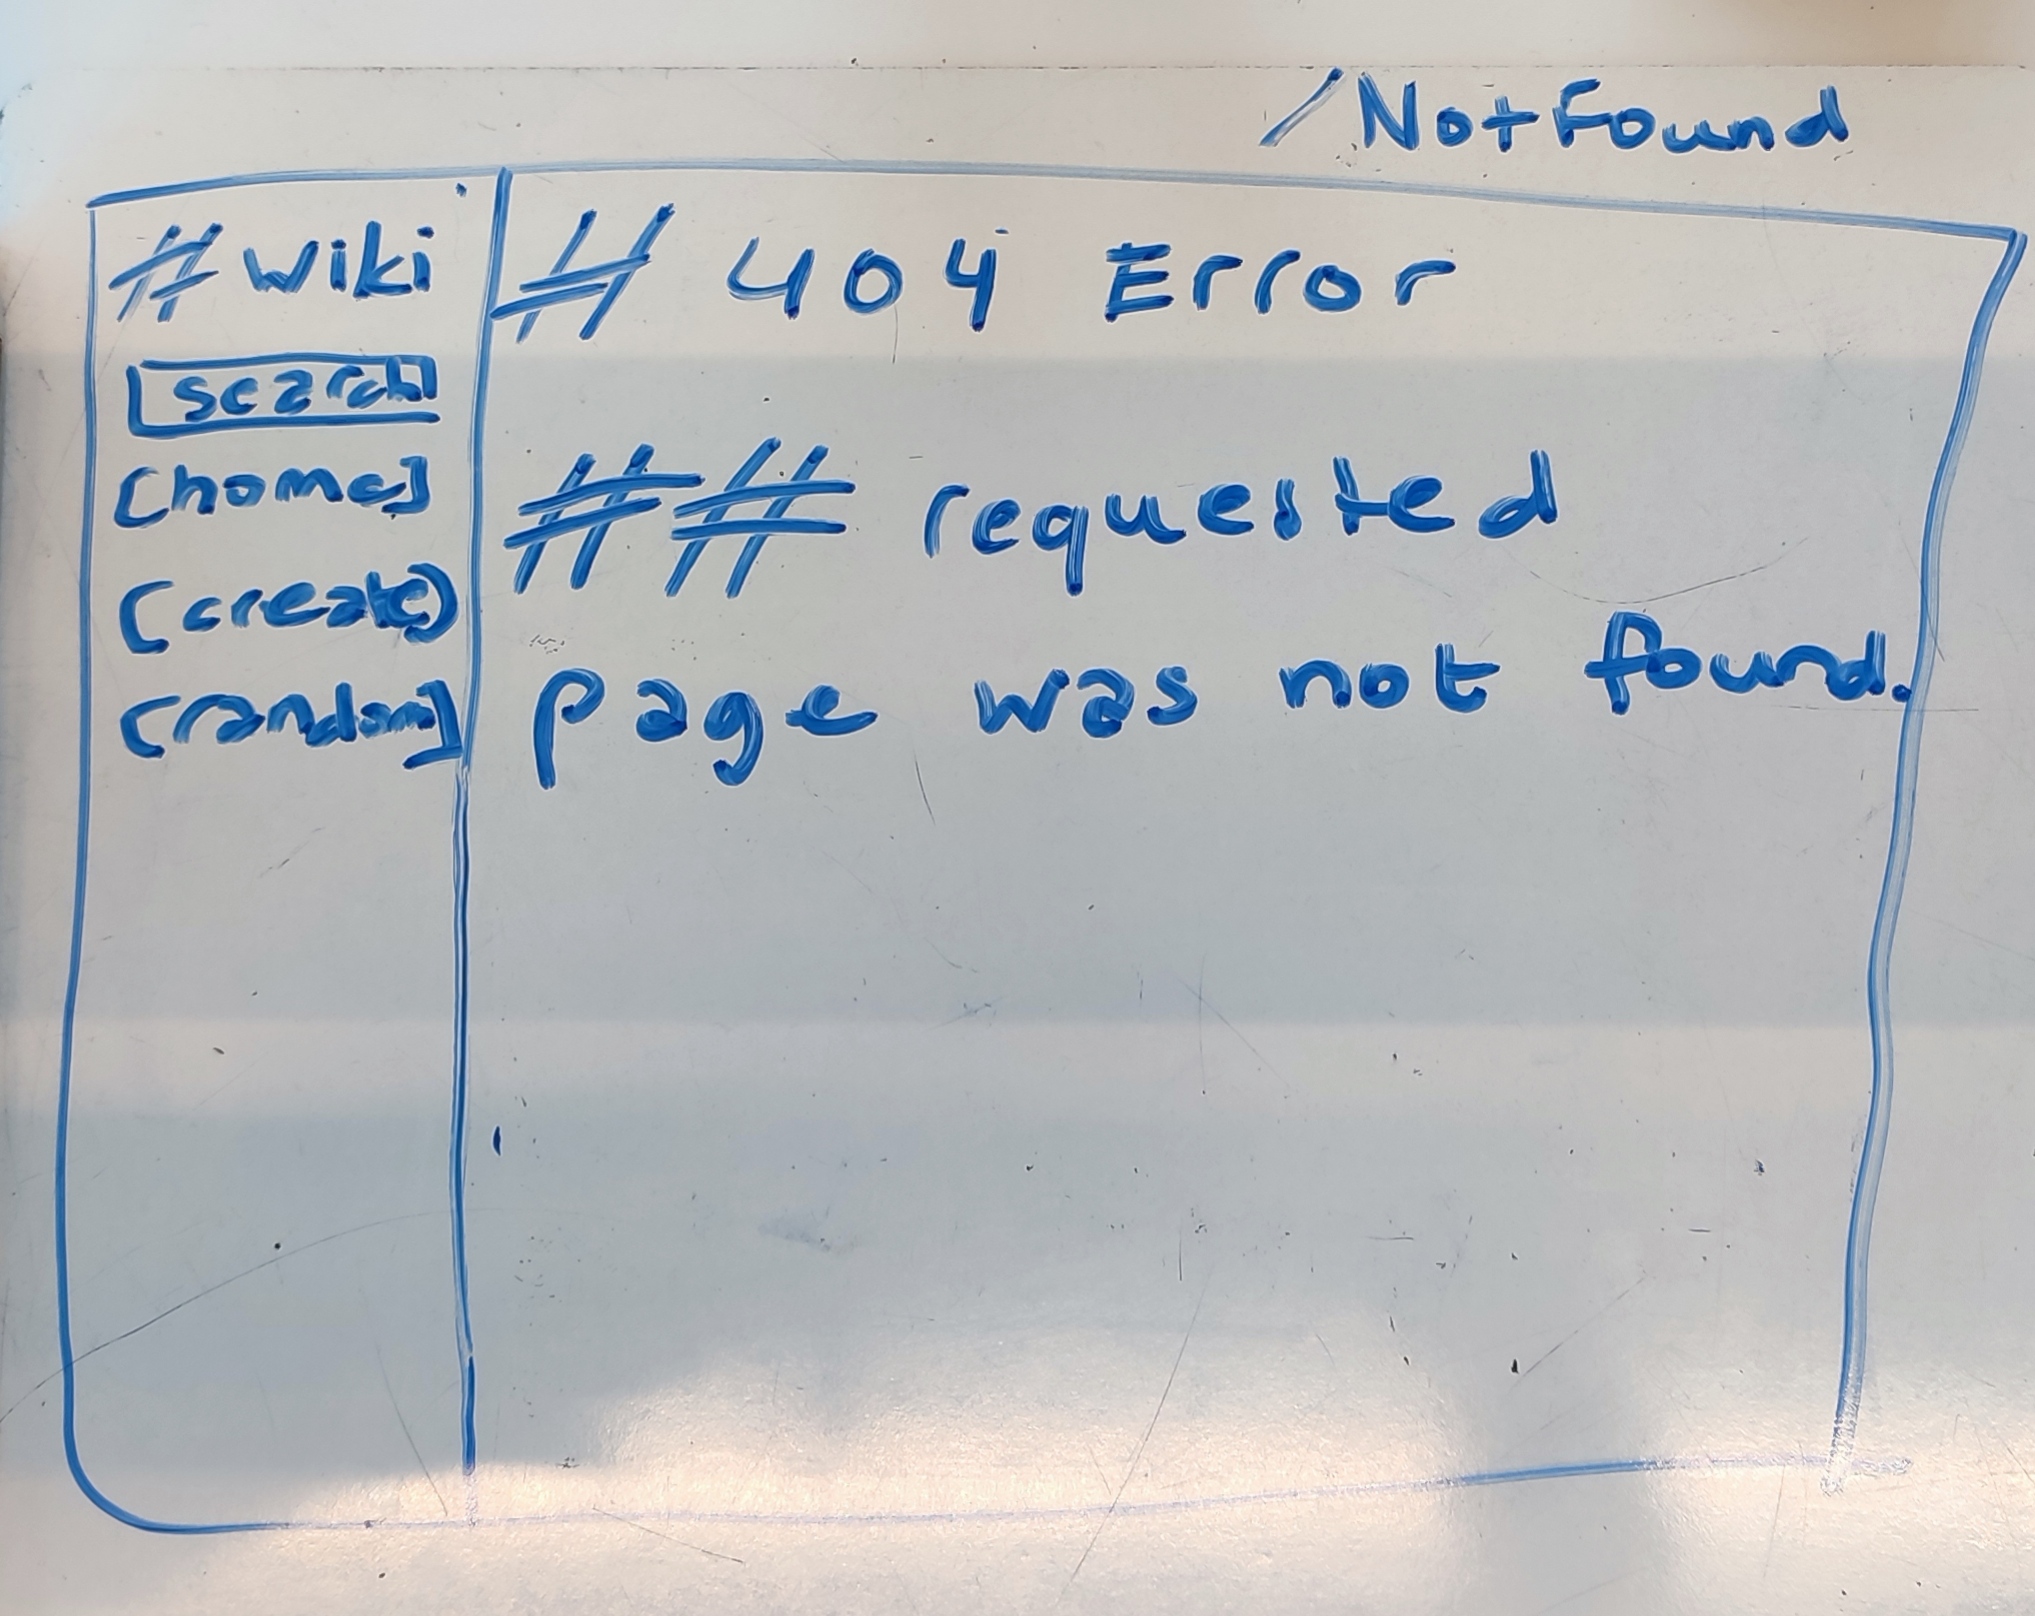 /NotFound
# wiki
search
[home]
[create]
[random]
# 404 Error
## requested
page was not found.